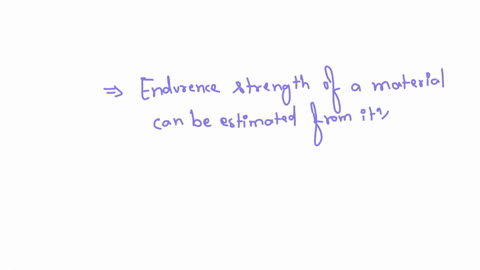 ⇒ Endurence strength of a material
can be estimated from its